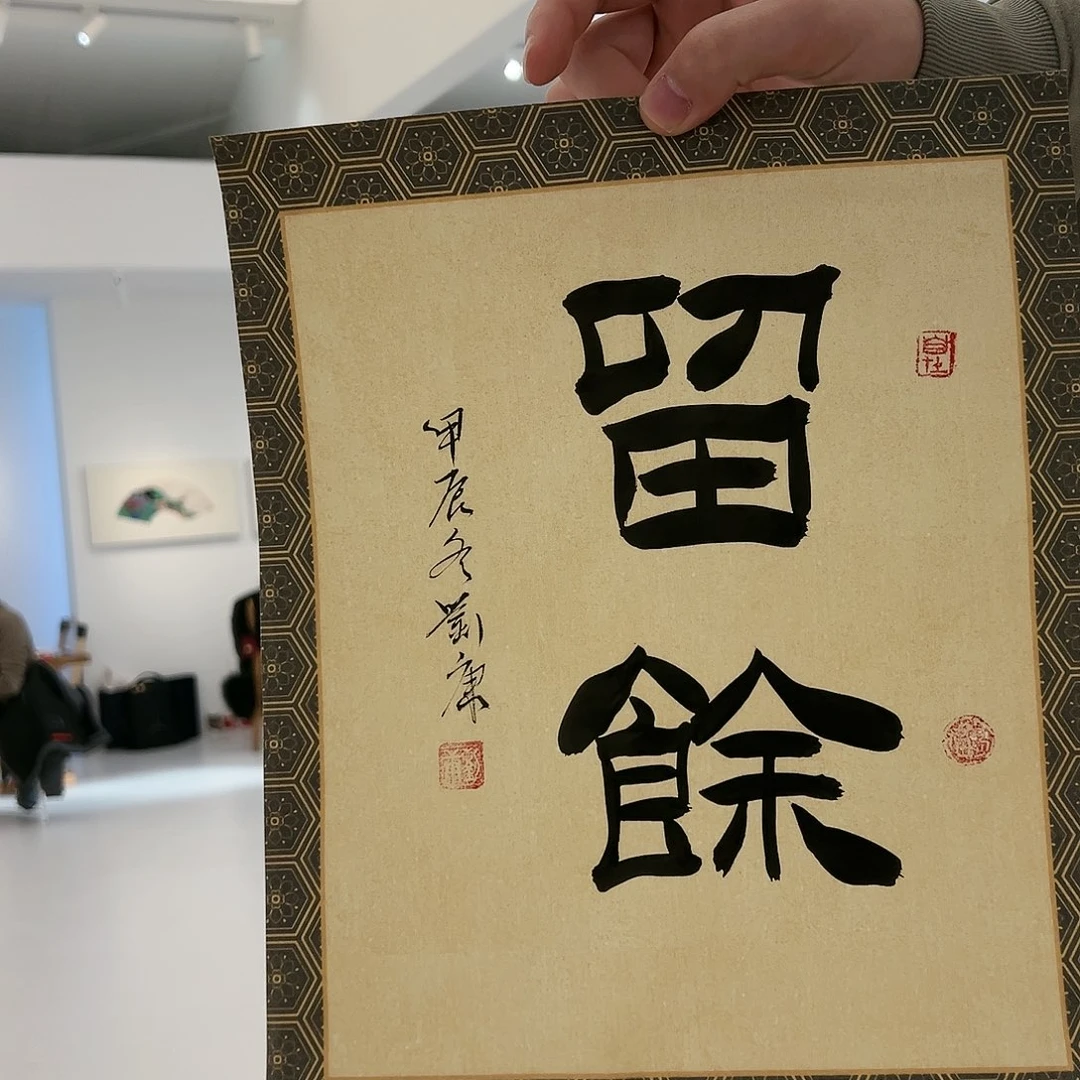 留餘
甲辰冬劉康